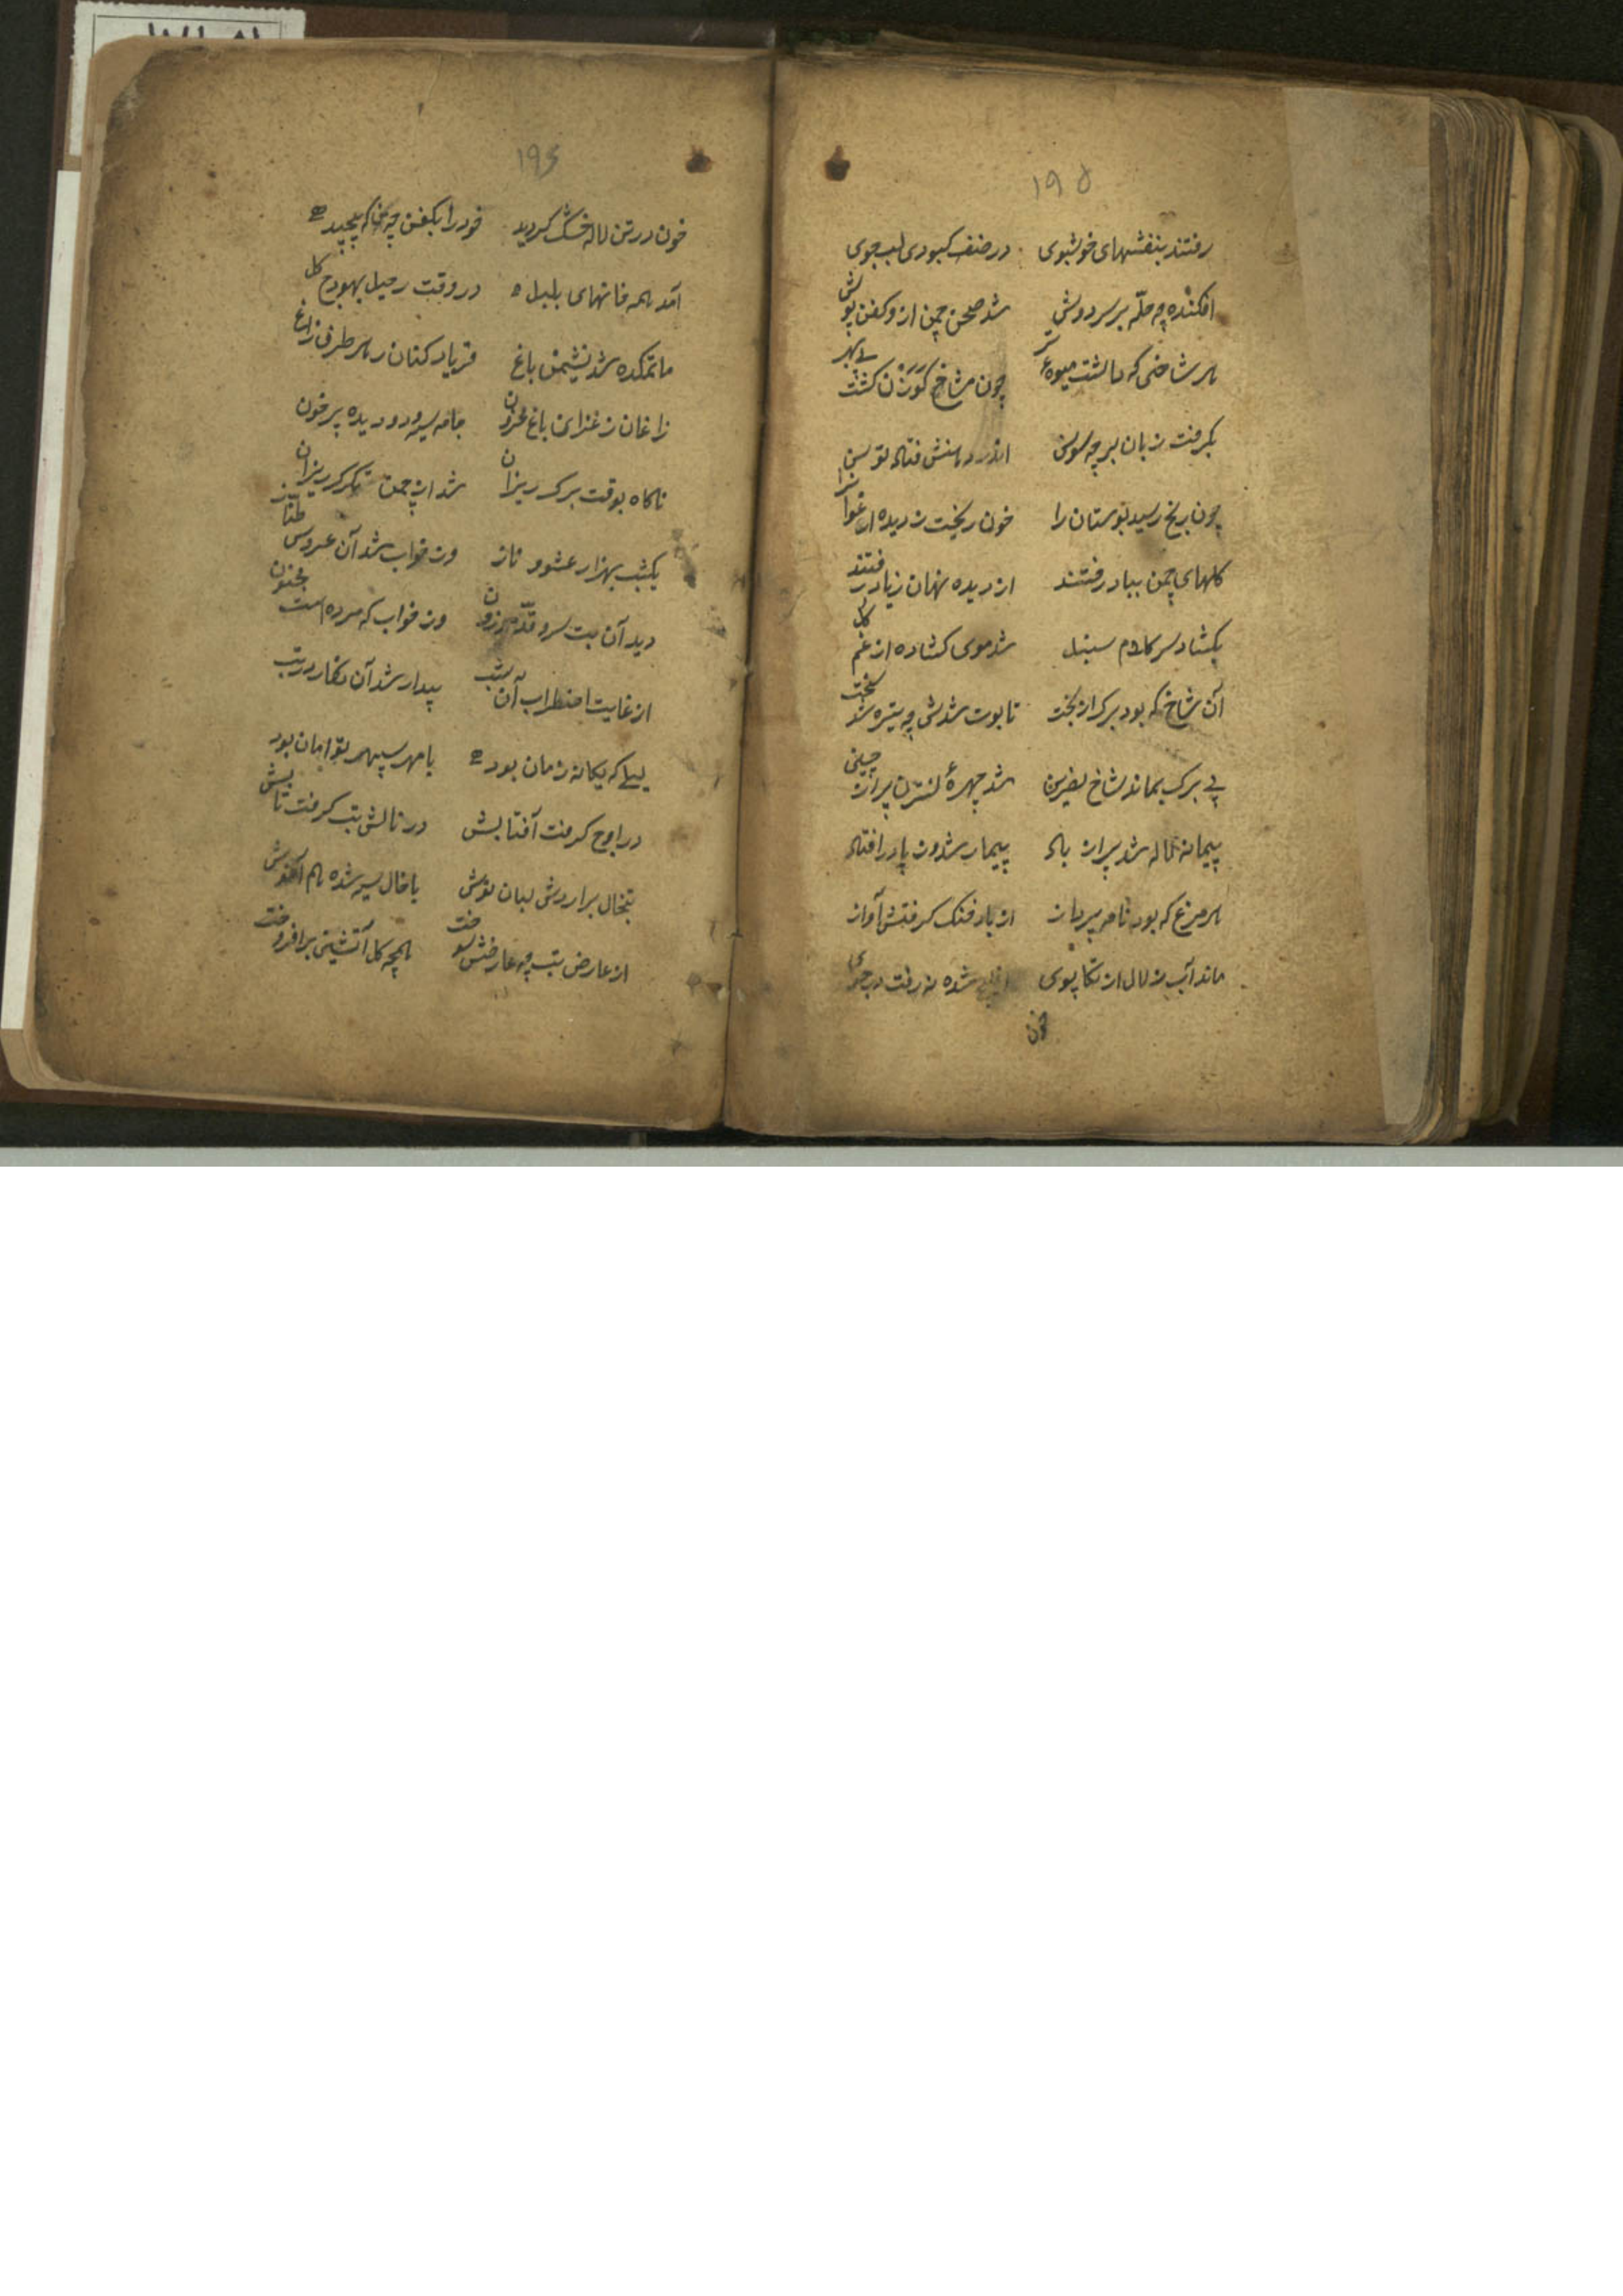 ۱۹۵
رفتند بنفشهای خوشبوی در صنف کبودی لب جوی
افکنده چه حلّه بر سر دوش شد صحن چمن ازو کفن پوش
هر شاخی که داشت میوهٔ تر چون شاخ گوزن گشت بی بر
بگرفت زبان بر چه سوسن
چون یخ رسید بوستان را خون ریخت ز دیده ارغوان را
کلهای چمن بباد رفتند از دیده نهان زیاد رفتند
بکشاد سر کلاوم سنبل شد موی کشاده از غم کل
آن شاخ که بود برک از بخت تابوت شدش چه تیره شد بخت
بی برک بماند شاخ نسرین شد چهرهٔ نسترن پر از چین
پیمانه لاله شد پر از باد بیمار شد و ز پا در افتاد
هر مرغ که بود نامه پرداز از باد فنک کرفتش آواز
ماند آب زلال از تکاپوی شده نه رفت در جوی
خون
۱۹۶
خون در تن لاله خشک کردید خود را بکفن چه پیچید
آمد همه فانهای بلبل در وقت رحیل بهودج کل
ماتمکده شد نشیمن باغ فریاد کنان ز هر طرف زاغ
زاغان ز عزای باغ محزون جامه سیه و دو دیده پر خون
ناکاه بوقت برک ریزان شد از چمن تکرک ریزان
یکشب بهزار عشوه و ناز در خواب شد آن عروس طناز
دید آن بت سرو قد موزون در خواب که مرده است مجنون
از غایت اضطراب آن شب بیدار شد آن نکار در تب
لیلی که یکانه زمان بود با مهر سپهر توامان بود
در اوج کرفت آفتابش در تابش تب کرفت تابش
تبخال بر آردش لبان نوش با خال سیه شده هم آغوش
از عارض تب چه عارضش سوخت همچه کل آتشینی بر افروخت